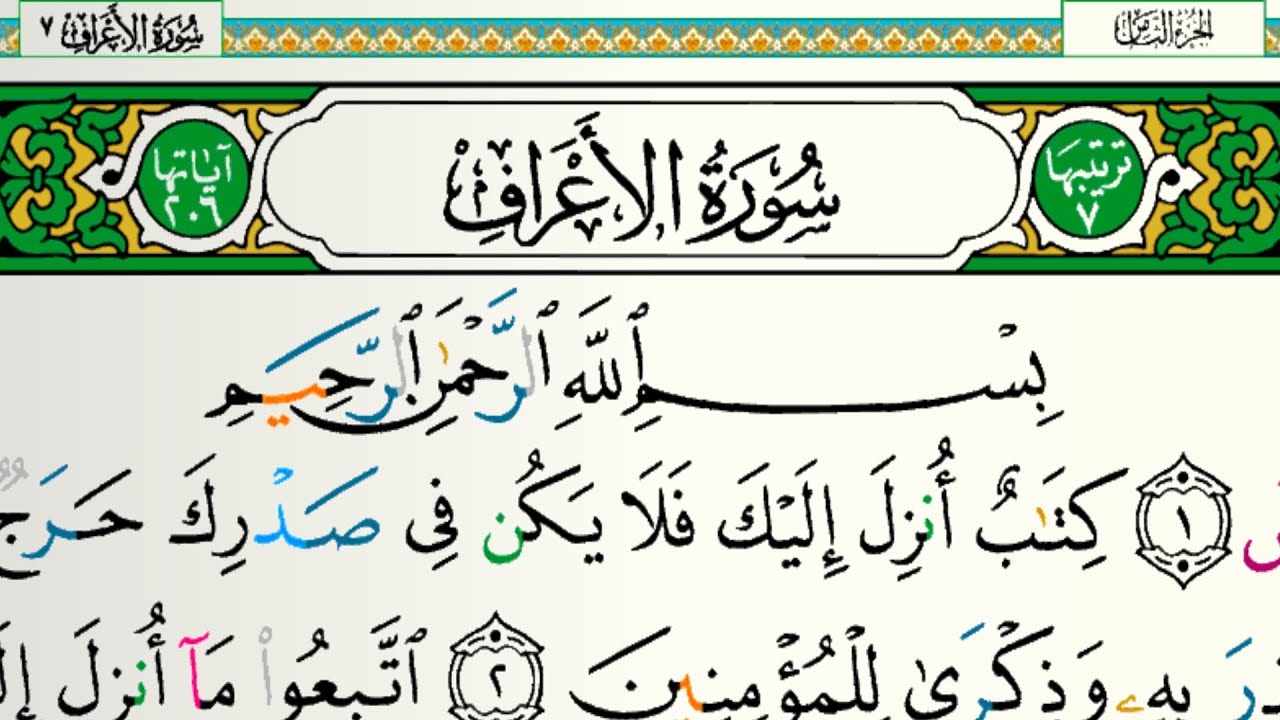 الجزء الثامن
سُورَةُ الأَعْرَافِ ٧
ترتيبها ٧
سُورَةُ الأَعْرَافِ
آياتها ٢٠٦
بِسْمِ ٱللَّهِ ٱلرَّحْمَٰنِ ٱلرَّحِيمِ
١ كِتَٰبٌ أُنزِلَ إِلَيْكَ فَلَا يَكُن فِى صَدْرِكَ حَرَجٌ
بِهِۦ وَذِكْرَىٰ لِلْمُؤْمِنِينَ ٢ ٱتَّبِعُوا۟ مَآ أُنزِلَ